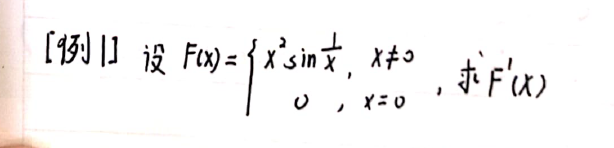 [例1] 设 F(x) = { x² sin 1/x, x≠0
0, x=0 , 求 F'(x)